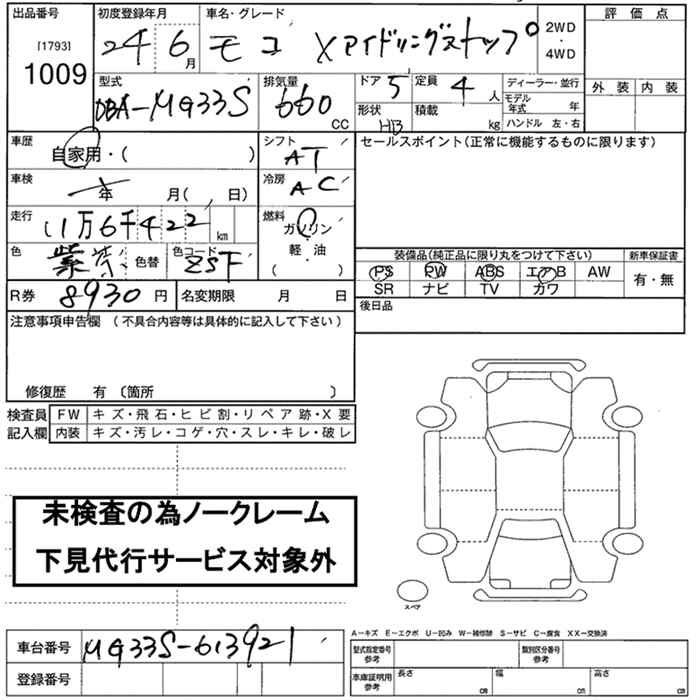 出品番号 初度登録年月 車名・グレード 評価点
[1793] 24 6月 モコ Xアイドリングストップ 2WD
1009 ・
4WD
型式 排気量 ドア 5 定員 4人 ディーラー・並行 外装 内装
DBA-MG33S 660 CC 形状 HB 積載 kg モデル年式 年
ハンドル 左・右
車歴 自家用・( ) シフト AT セールスポイント(正常に機能するものに限ります)
車検 年 月( , 日) 冷房 AC
走行 11万6千422 km 燃料 ガソリン
軽・油
色 紫 色替 色コード ZSF ( ・ ) 装備品(純正品に限り丸をつけて下さい) 新車保証書
PS PW ABS エアB AW 有・無
R券 8930円 名変期限 月 日 SR ナビ TV カワ
後日品
注意事項申告欄 (不具合内容等は具体的に記入して下さい)
修復歴 有 〔箇所 〕
検査員 FW キズ・飛石・ヒビ割・リペア跡・X要
記入欄 内装 キズ・汚レ・コゲ・穴・スレ・キレ・破レ
未検査の為ノークレーム
下見代行サービス対象外
スペア
A-キズ E-エクボ U-凹み W-補修跡 S-サビ C-腐食 XX-交換済
車台番号 MG33S-613921 型式指定番号 参考 類別区分番号 参考
登録番号 車庫証明用 参考 長さ cm 幅 cm 高さ cm